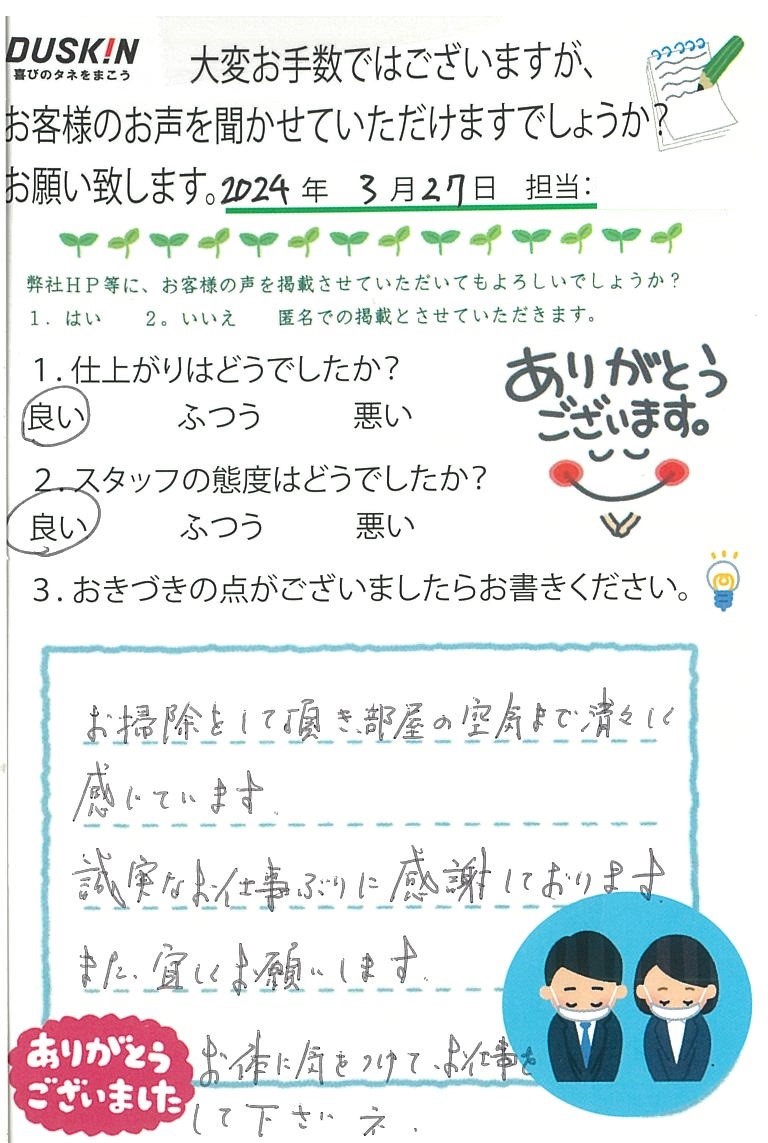 DUSK!N
喜びのタネをまこう
大変お手数ではございますが、
お客様のお声を聞かせていただけますでしょうか?
お願い致します。2024年 3月27日 担当:
弊社HP等に、お客様の声を掲載させていただいてもよろしいでしょうか?
1. はい 2。いいえ 匿名での掲載とさせていただきます。
1. 仕上がりはどうでしたか?
良い ふつう 悪い
ありがとう
ございます。
2. スタッフの態度はどうでしたか?
良い ふつう 悪い
3. おきづきの点がございましたらお書きください。
お掃除をして頂き、部屋の空気まで清々しく
感じています.
誠実なお仕事ぶりに感謝しております
また、宜しくお願いします.
お体に気をつけて、お仕事を
して下さいネ.
ありがとう
ございました